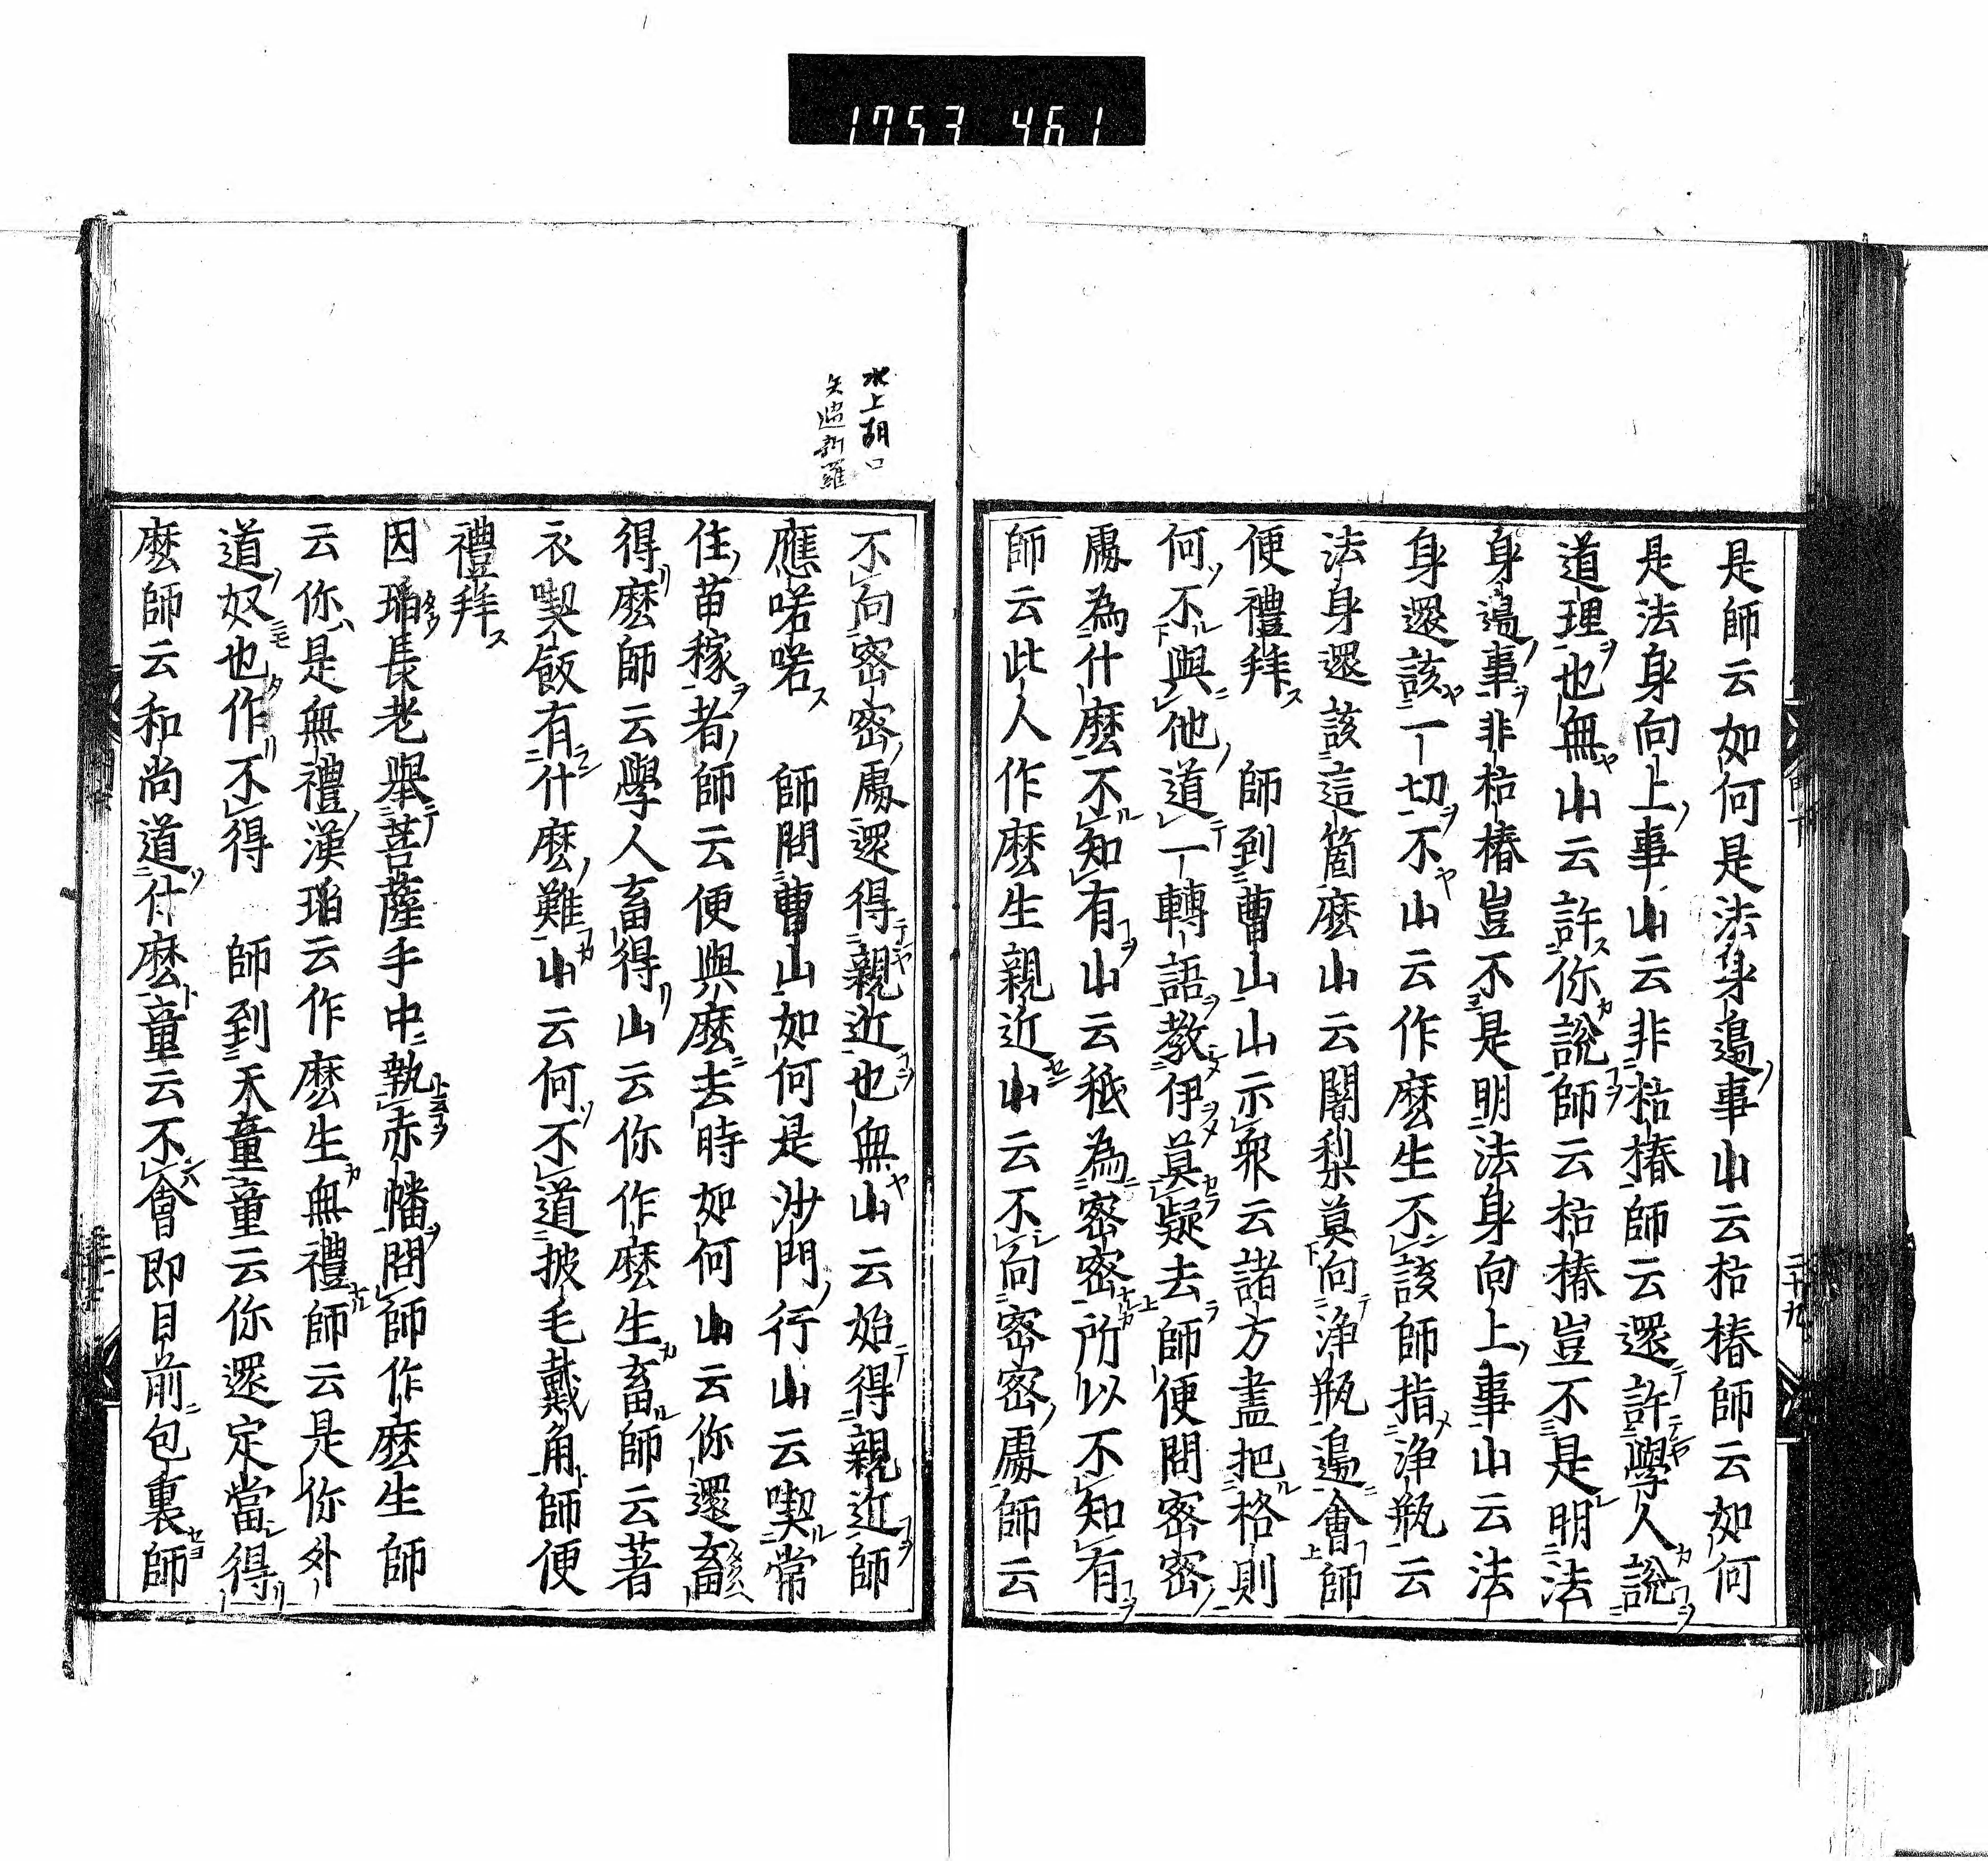 1753 461
是師云如何是法身邉事山云枯樁師云如何
是法身向上事山云非枯樁師云還許學人說
道理也無山云許你說師云枯樁豈不是明法
身邉事非枯樁豈不是明法身向上事山云法
身還該一切不山云作麽生不該師指淨瓶云
法身還該這箇麽山云闍梨莫向淨瓶邉會師
便禮拜　師到曹山山示衆云諸方盡把格則
何不與他道一轉語教伊莫疑去師便問密密
處為什麽不知有山云秪為密密所以不知有
師云此人作麽生親近山云不向密密處師云
水上胡
矢過新羅
不向密密處還得親近也無山云始得親近師
應喏喏　師問曹山如何是沙門行山云喫常
住苗稼者師云便與麽去時如何山云你還畜
得麽師云學人畜得山云你作麽生畜師云著
衣喫飯有什麽難山云何不道披毛戴角師便
禮拜
因瑫長老舉菩薩手中執赤幡問師作麽生師
云你是無禮漢瑫云作麽生無禮師云是你外
道奴也作不得　師到天童童云你還定當得
麽師云和尚道什麽童云不會即目前包裹師
二十九